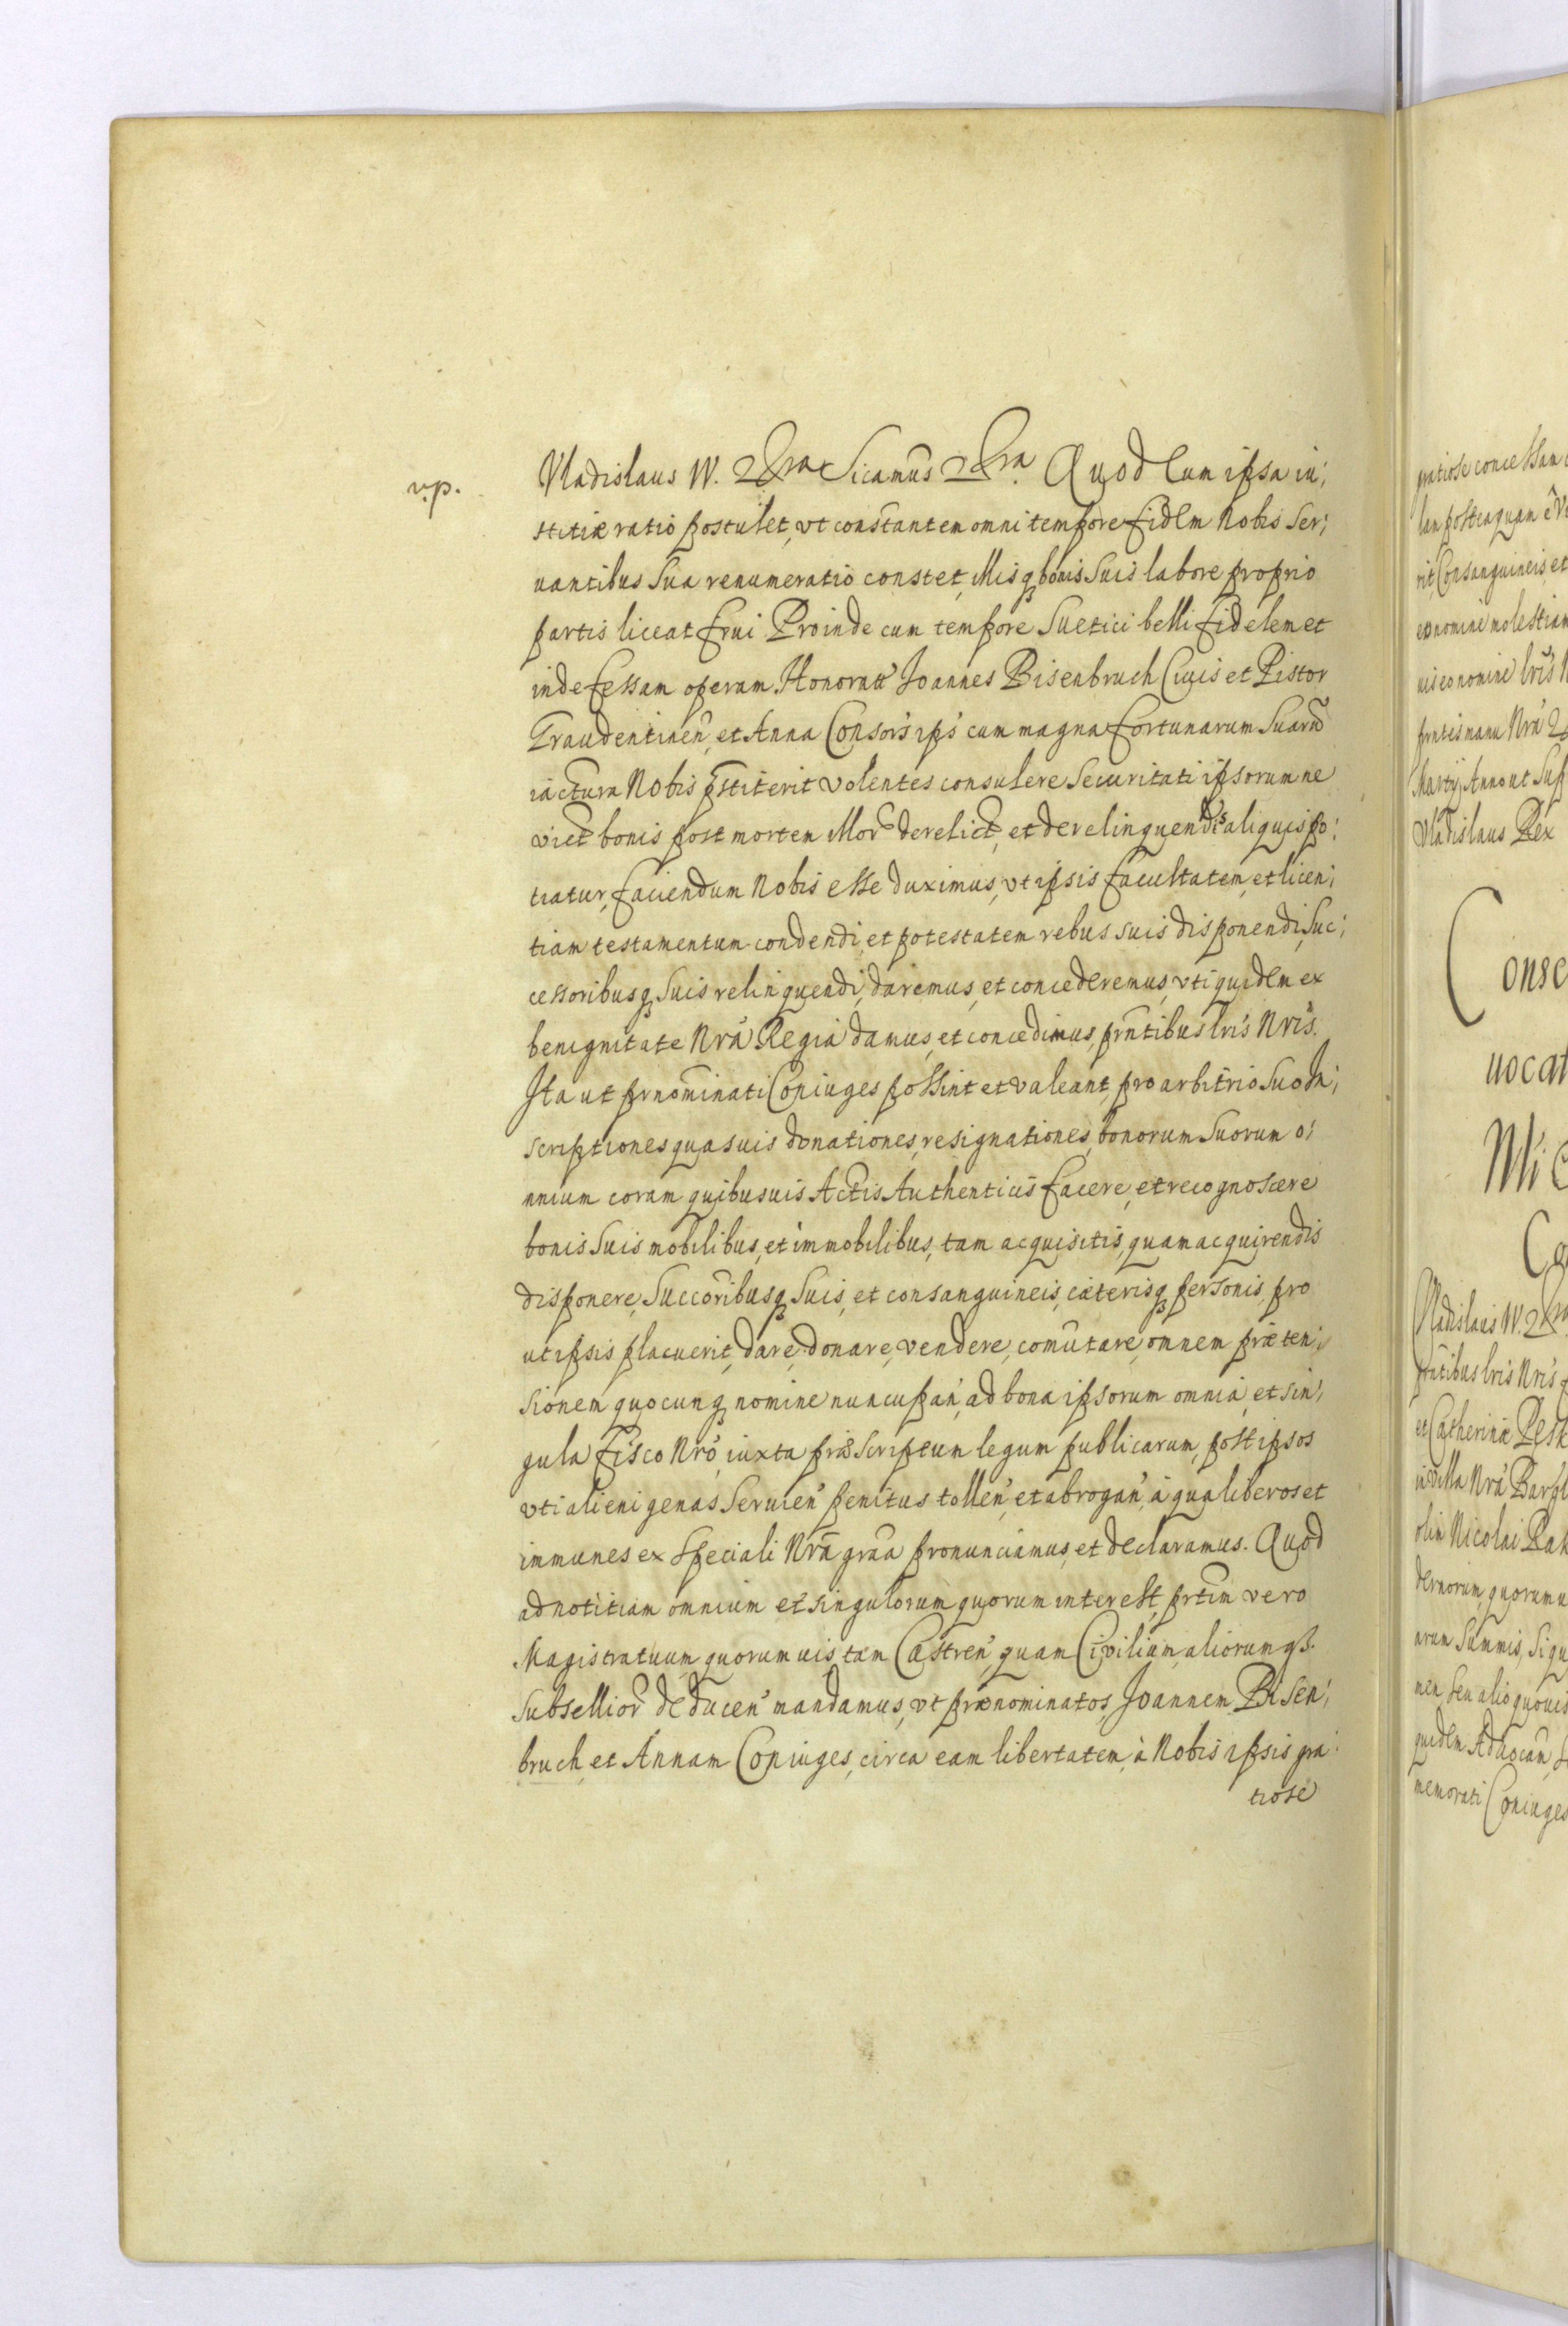 v.p.
Vladislaus IV. &ra Sicamus &ra. Quod Cum ipsa iu:
stitiæ ratio postulet, vt constantem omni tempore fidem Nobis Ser:
uantibus Sua renumeratio constet, illisq bonis Suis labore proprio
partis liceat frui Proinde cum tempore Suetici belli fidelem et
indefessam operam Honorat Joannes Bisenbruch Ciuis et Pistor
Graudentinen, et Anna Consors ips' cum magna fortunarum Suaru
iactura Nobis pstiterit volentes consulere Securitati ipsorum ne
vict bonis post mortem illor derelict, et derelinquendis aliquis po:
tiatur, faciendum Nobis esse duximus, vt ipsis facultatem, et licen:
tiam testamentum condendi, et potestatem rebus suis disponendi, Suc:
cessoribusq Suis relinquendi, daremus, et concederemus, vti quidem ex
benignitate Nra Regia damus, et concedimus, prntibus lris Nris.
Ita ut prnominati Coniuges possint et valeant, pro arbitrio Suo In:
scriptiones quasuis donationes, resignationes, bonorum Suorum o:
mnium coram quibusuis Actis Authenticis facere, et recognoscere
bonis Suis mobilibus, et immobilibus, tam acquisitis, quam acquirendis
disponere, Succoribusq Suis, et consanguineis, cæterisq personis, pro
ut ipsis placuerit, dare, donare, vendere, comutare, omnem præten:
sionem quocunq nomine nuncupan, ad bona ipsorum omnia, et sin:
gula Fisco Nro, iuxta præscriptum legum publicarum, post ipsos
vti alienigenas Seruien' penitus tollen', et abrogan', à qua liberos et
immunes ex Speciali Nra graa pronunciamus, et declaramus. Quod
ad notitiam omnium et singulorum quorum interest, prtim vero
Magistratuum quorumuis, tam Castren', quam Ciuilium, aliorunqs.
Subsellior deducen' mandamus, vt prænominatos, Joannem Bisen:
bruch, et Annam Coniuges, circa eam libertatem, à Nobis ipsis gra:
tiose
gratiose concessam
rit, Consanguineis, et
eo nomine molestiam
uis eo nomine lris
prntis manu Nra
Martij, Anno ut Sup
Vladislaus Rex
Consc
uocat
Vladislaus IV. &ra
prntibus lris Nris
et Catherinæ
in villa Nra
olim Nicolai
quorum
arum Summis, Siqu
nen, Seu alio quouis
quidem
memorati Coniuges